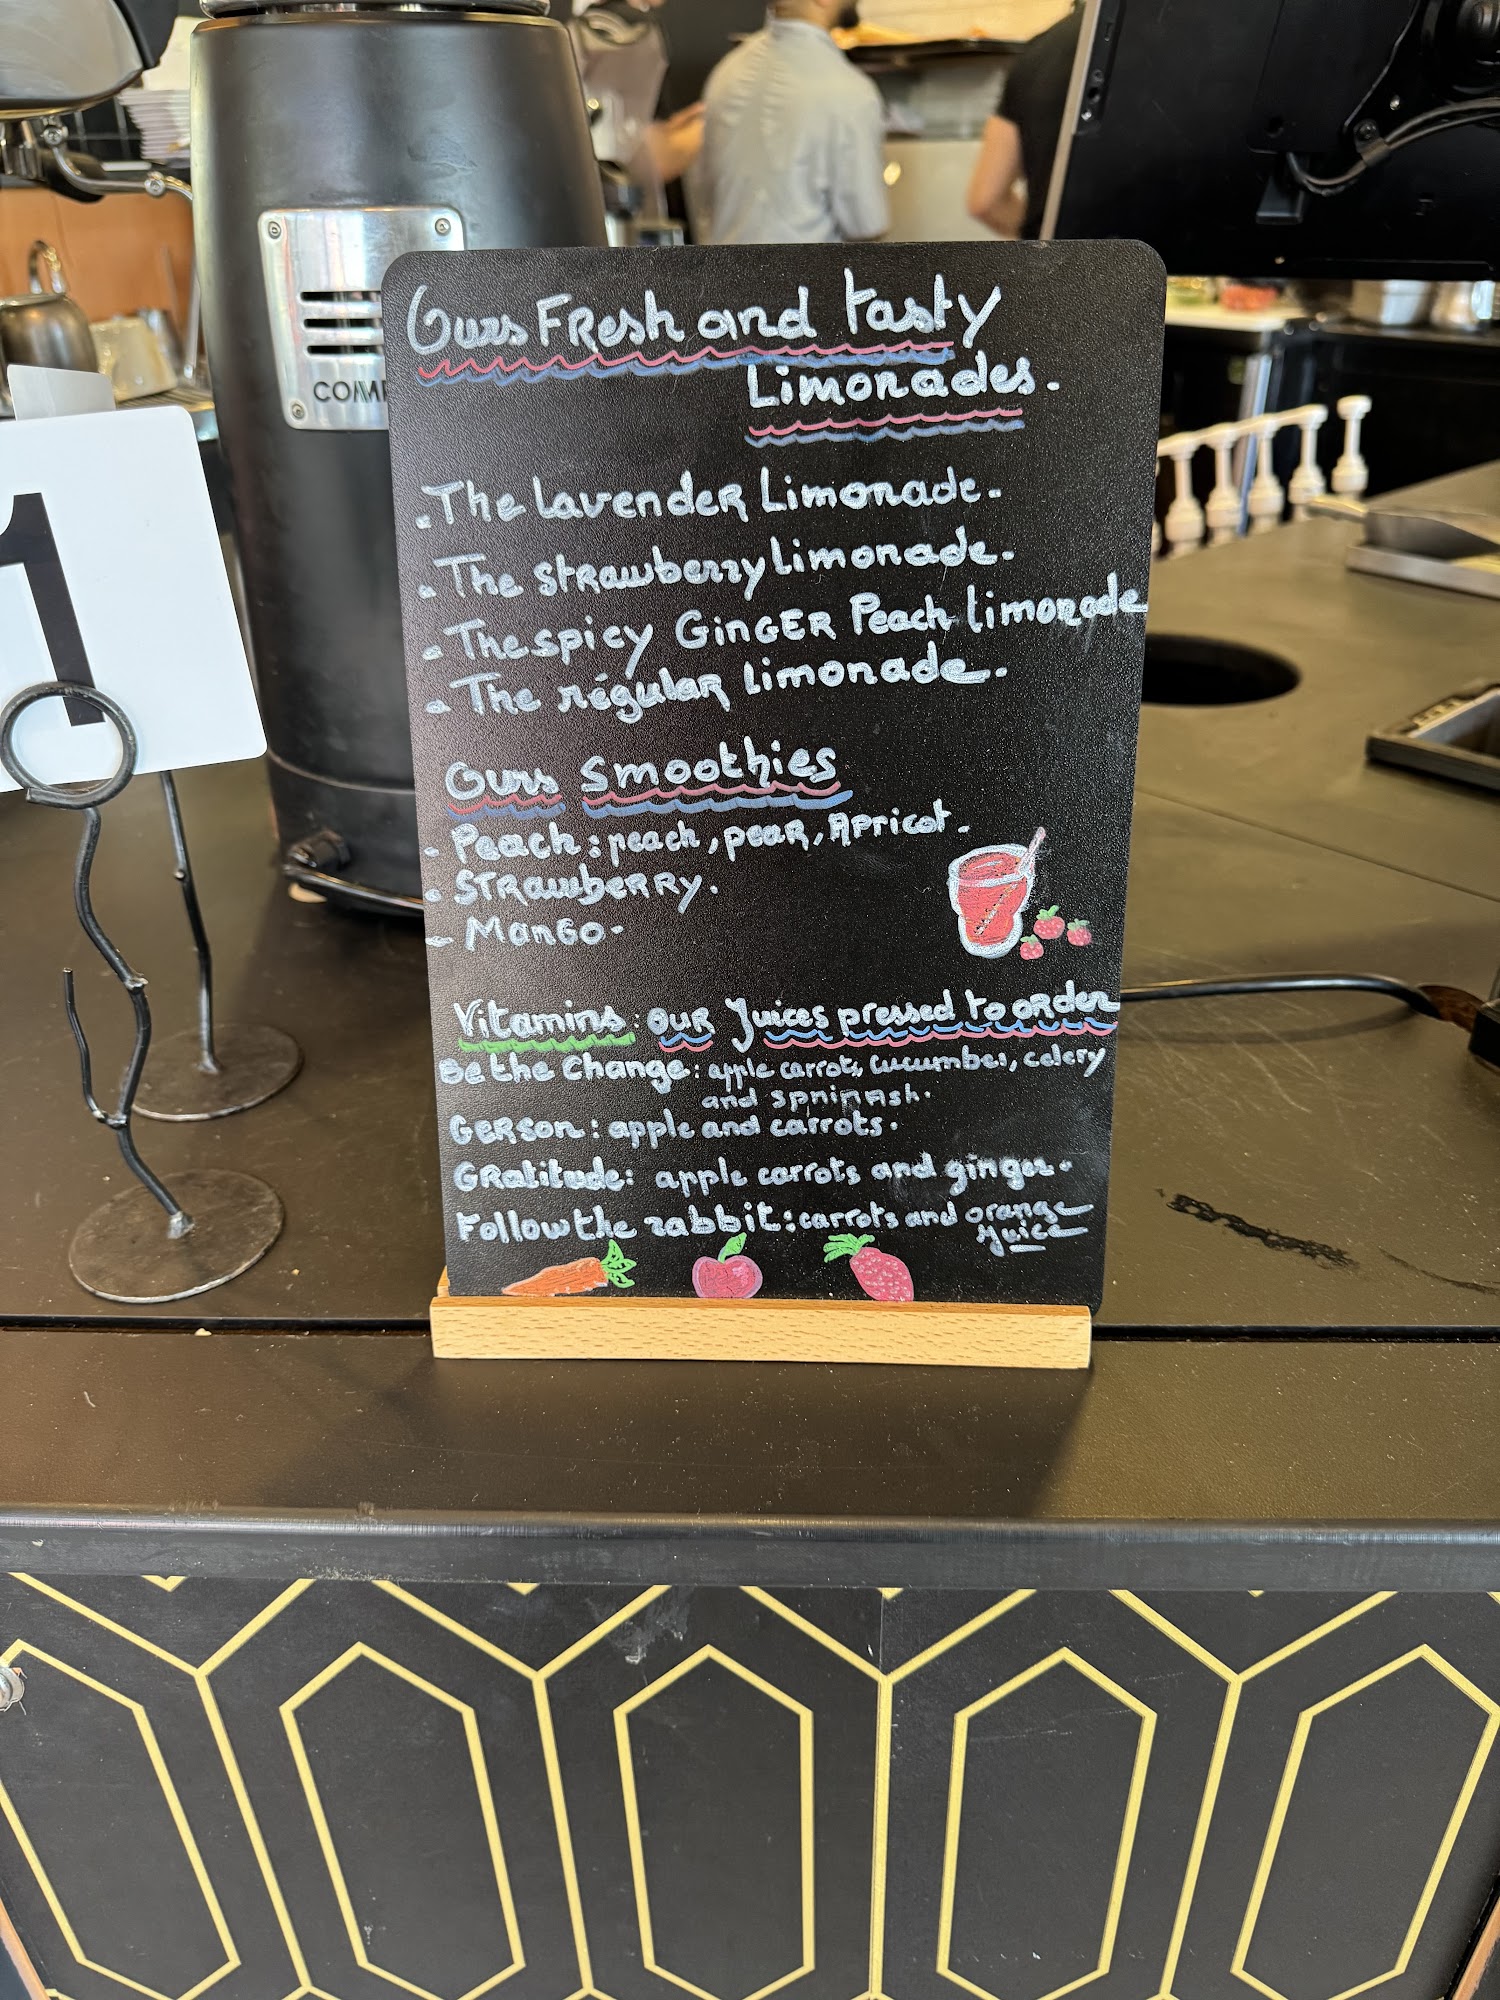 Ours Fresh and tasty
Limonades.
- The lavender Limonade.
- The strawberry limonade.
- The spicy GinGER Peach limonade
- The régular limonade.
Ours Smoothies
- Peach: peach, pear, Apricot.
- STRawbeRRy.
- ManGo.
Vitamins: our Juices pressed to order
Be the Change: apple carrots, cucumber, celery
and spninash.
GERson: apple and carrots.
GRatitude: apple carrots and ginger.
Follow the rabbit: carrots and orange
juice
1
COMP